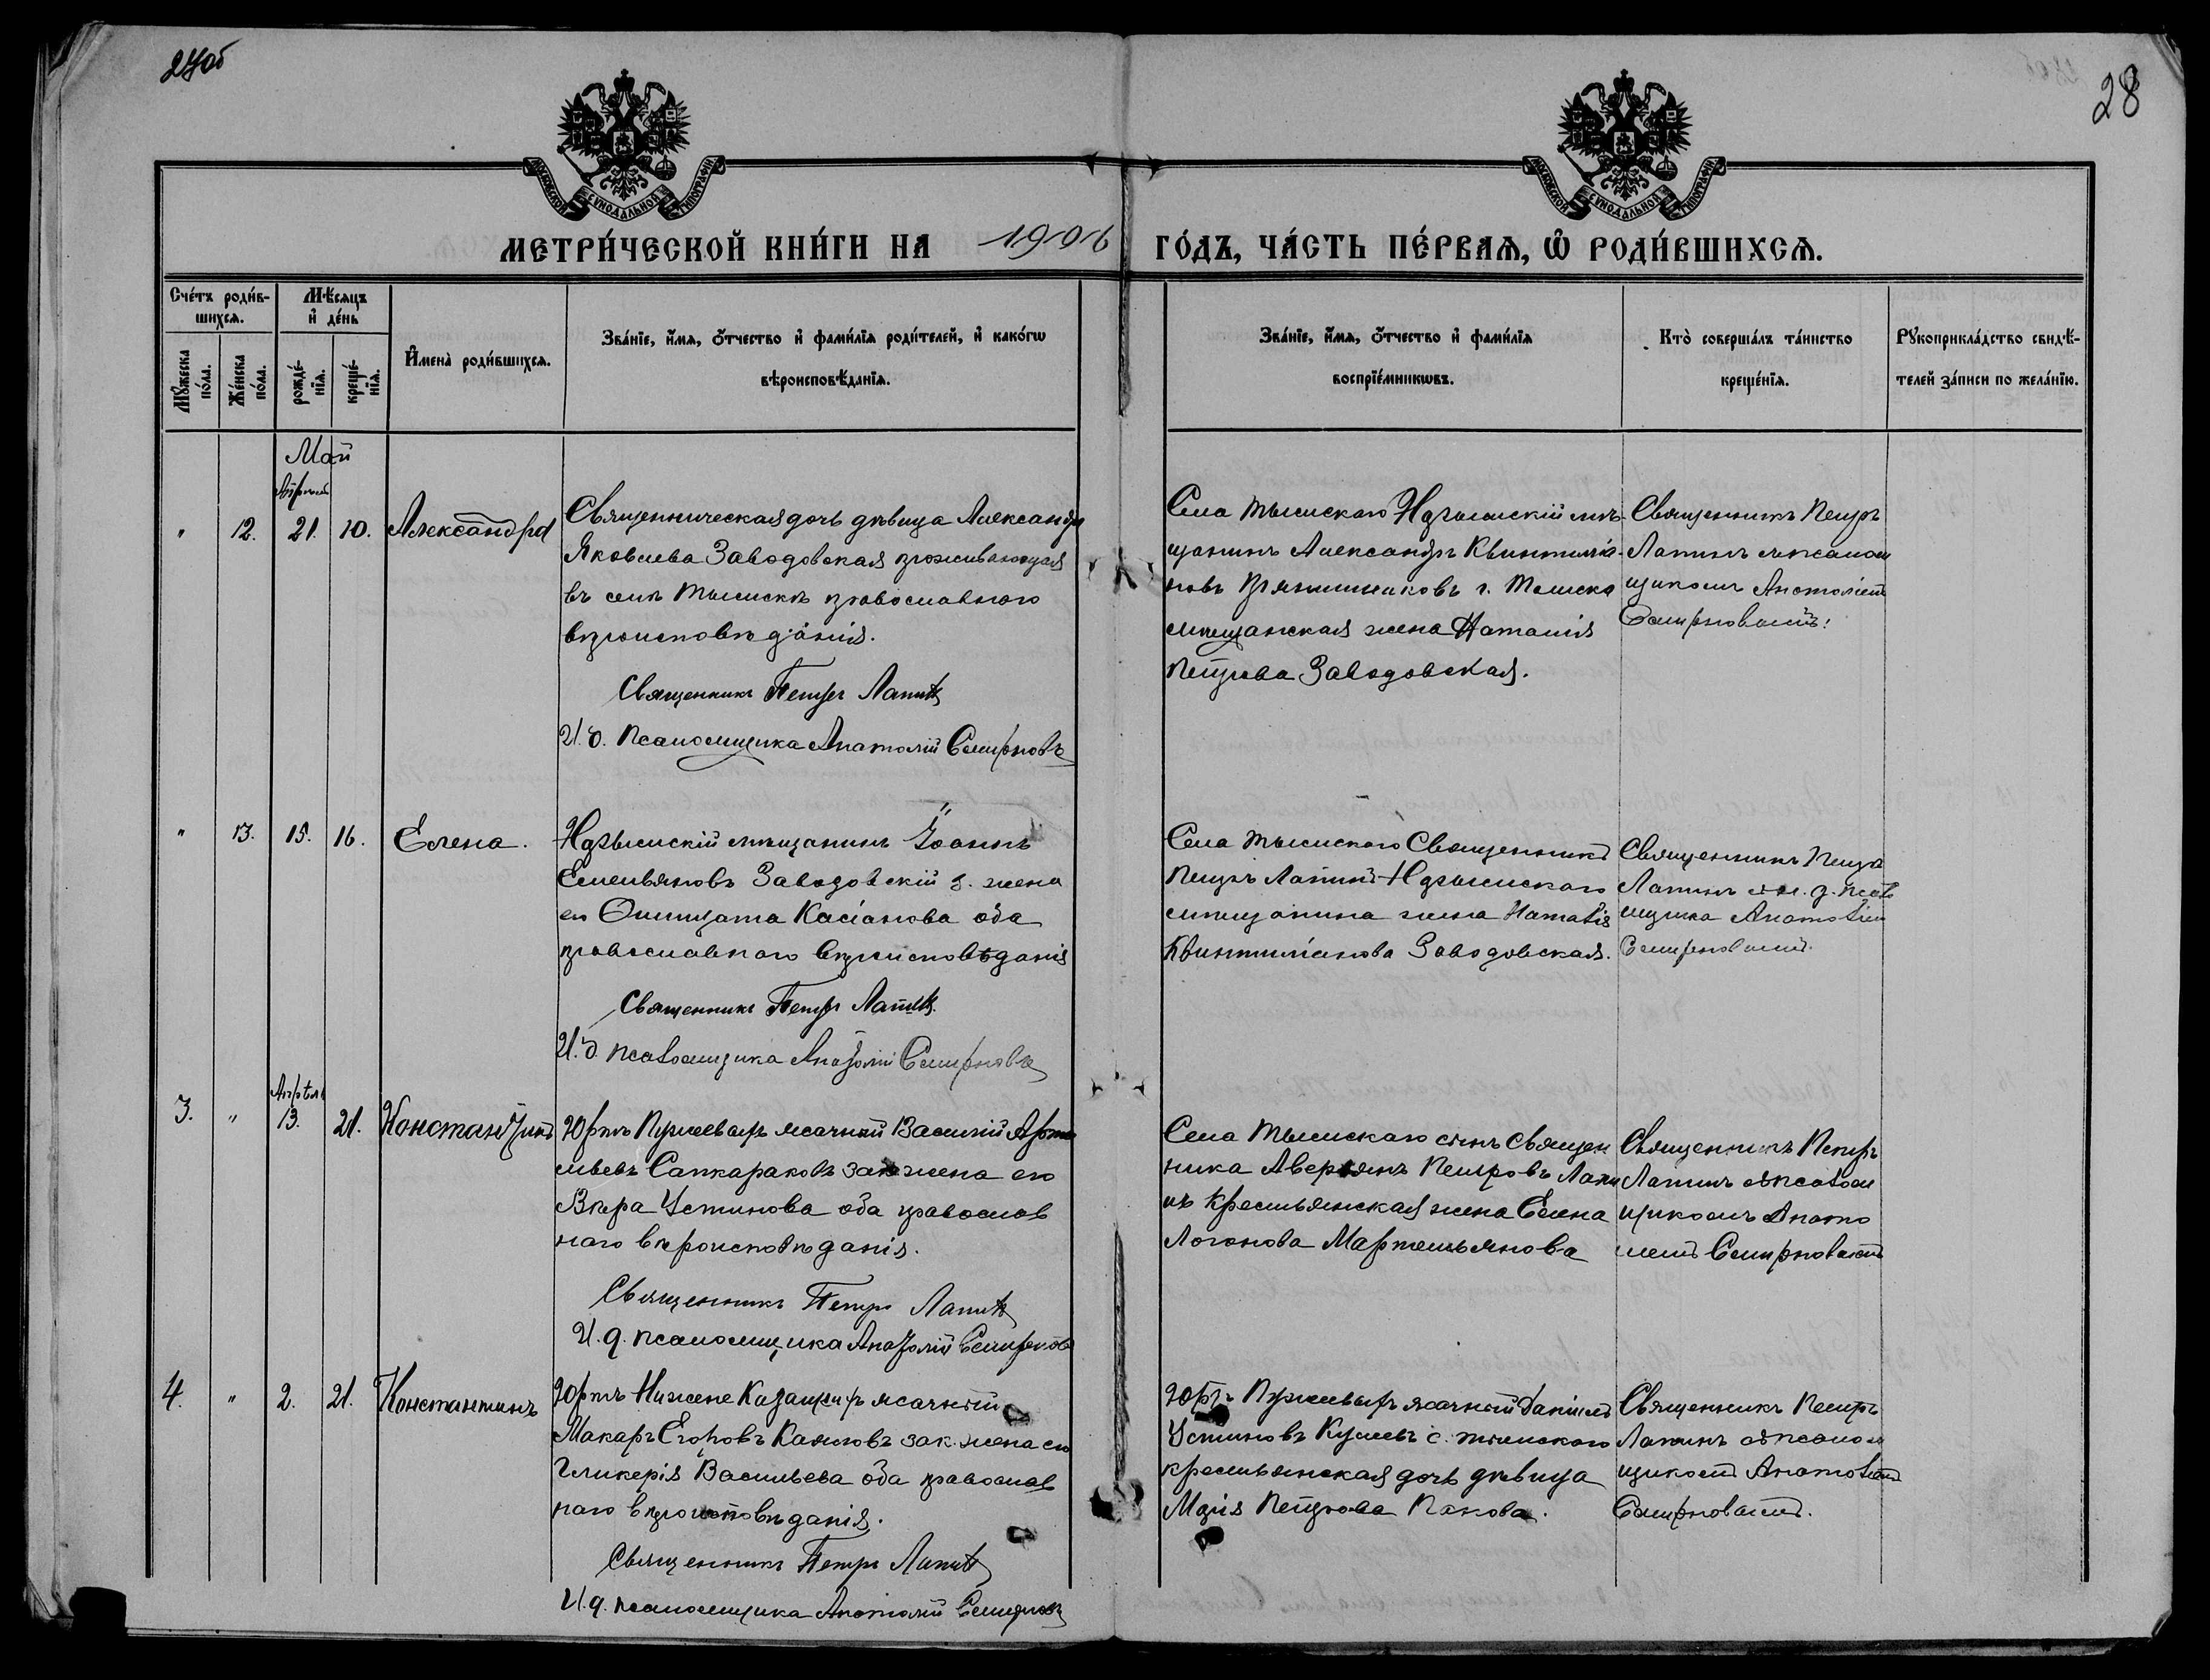 27об
28
МОСКОВСКОЙ СѴНОДАЛЬНОЙ ТИПОГРАФІИ
МОСКОВСКОЙ СѴНОДАЛЬНОЙ ТИПОГРАФІИ
МЕТРИ́ЧЕСКОЙ КНИ́ГИ НА 1906 ГО́ДЪ, ЧА́СТЬ ПЕ́РВАЯ, Ѡ҆ РОДИ́ВШИХСЯ.
Сче́тъ роди́в-
шихся.
Мѣ́сяцъ
и҆ де́нь
Мꙋ́жеска
по́ла.
Же́нска
по́ла.
рожде́-
нїя.
креще́-
нїя.
И҆мена̀ роди́вшихся.
Зва́нїе, и҆́мя, ѻ҆́тчество и҆ фами́лїя роди́телей, и҆ како́гѡ
вѣроисповѣ́данїя.
Зва́нїе, и҆́мя, ѻ҆́тчество и҆ фами́лїя
воспрїе́мникѡвъ.
Кто̀ соверша́лъ та́инство
креще́нїя.
Рꙋкоприкла́дство свидѣ́-
телей за́писи по жела́нїю.
Май
Апрель
" 12. 21. 10. Александра
Священническая дочь дѣвица Александра
Яковлева Заводовская проживающая
въ селѣ Тымскѣ православного
вѣроисповѣданія.
Священникъ Петръ Лапинъ
И. д. Псаломщика Анатолій Смирновъ
Села Тымскаго Нарымскій мѣ-
щанинъ Александръ Квинтиліа-
новъ г. Томска
мѣщанская жена Наталія
Петрова Заводовская.
Священникъ Петръ
Лапинъ съ псалом
щикомъ Анатоліемъ
Смирновымъ.
" 13. 15. 16. Елена.
Нарымскій мѣщанинъ Іоаннъ
Емельяновъ Заводовскій з. жена
его Олимпіата Касіанова оба
православнаго вѣроисповѣданія
Священникъ Петръ Лапинъ.
И. д. псаломщика Анатолій Смирновъ
Села Тымского Священникъ
Петръ Лапинъ Нарымскаго
мѣщанина жена Наталія
Квинтиліанова Заводовская.
Священникъ Петръ
Лапинъ с и. д. псало
мщика Анатоліем
Смирновымъ.
Апрѣль
3. " 13. 21. Константинъ
Юртъ Пыжевыхъ ясачный Василій Арте
мьевъ Сапкараковъ зак жена его
Вѣра Устинова оба православ
наго вѣроисповѣданія.
Священникъ Петръ Лапинъ
И. д. псаломщика Анатолій Смирновъ
Села Тымскаго сынъ Священ
ника Аверьянъ Петровъ Лапи
нъ крестьянская жена Елена
Логонова Мартемьянова
Священникъ Петръ
Лапинъ съ псалом
щикомъ Анато
ліемъ Смирновымъ
4. " 2. 21. Константинъ
Юртъ Нижне ясачный
Макаръ Егоровъ Каяловъ зак. жена его
Гликерія Васильева оба православ
наго вѣроисповѣданія.
Священникъ Петръ Лапинъ
И. д. псаломщика Анатолій Смирновъ
Юртъ Пыжевыхъ ясачный Даніилъ
Устиновъ с. Тымского
крестьянская дочь дѣвица
Марія Петрова Панова.
Священникъ Петръ
Лапинъ съ псалом
щикомъ Анатоліемъ
Смирновымъ.